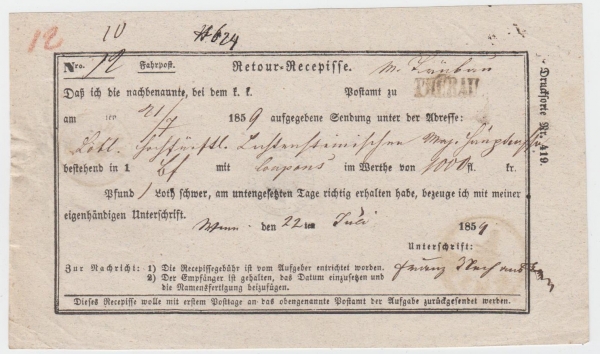 12
10
#624
Nro. 72 Fahrpost. Retour-Recepisse. M. Trübau
Daß ich die nachbenannte, bei dem k. k. Postamt zu
am 21/7 1859 aufgegebene Sendung unter der Adresse:
Löbl. hochfürstl. Liechtensteinischen
bestehend in 1 Bf mit Coupons im Werthe von 1000 fl. kr.
Pfund 1 Loth schwer, am untengesetzten Tage richtig erhalten habe, bezeuge ich mit meiner
eigenhändigen Unterschrift.
Wien den 22ten Juli 1859.
Unterschrift:
Franz
Zur Nachricht: 1) Die Recepissegebühr ist vom Aufgeber entrichtet worden.
2) Der Empfänger ist gehalten, das Datum einzusetzen und
die Namensfertigung beizufügen.
Dieses Recepisse wolle mit erstem Posttage an das obengenannte Postamt der Aufgabe zurückgesendet werden.
Drucksorte Nr. 419.